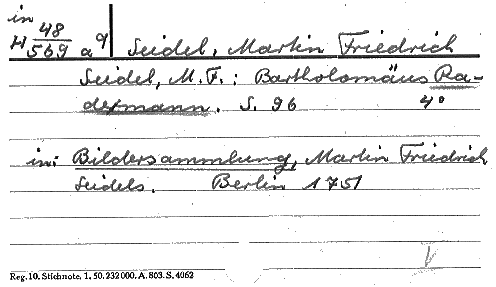 in
H 48/569 a q Seidel, Martin Friedrich
Seidel, M. F.: Bartholomäus Ra-
demann. S. 96 4°
in: Bildersammlung, Martin Friedrich
Seidels. Berlin 1751
Reg. 10. Stichnote. 1. 50. 232000. A. 803. S. 4062